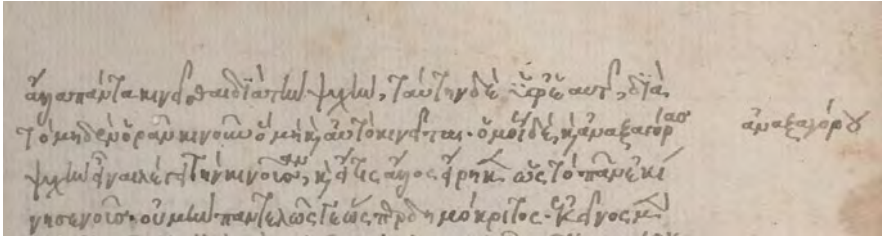 ἄλλα πάντα κινεῖσθαι διὰ τὴν ψυχὴν, ταύτην δὲ ὑφ' ἑαυτῆς, διὰ
τὸ μηδὲν ὁρᾶν κινοῦν ὃ μὴ καὶ αὐτὸ κινεῖται· ὁμοίως δὲ καὶ ἀναξαγόρας ἀναξαγόρου
ψυχὴν εἶναι λέγει τὴν κινοῦσαν, καὶ εἴ τις ἄλλος εἴρηκεν ὡς τὸ πᾶν ἐκί
νησε νοῦς· οὐ μὴν παντελῶς γε ὥσπερ δημόκριτος· ἐκεῖνος μὲν